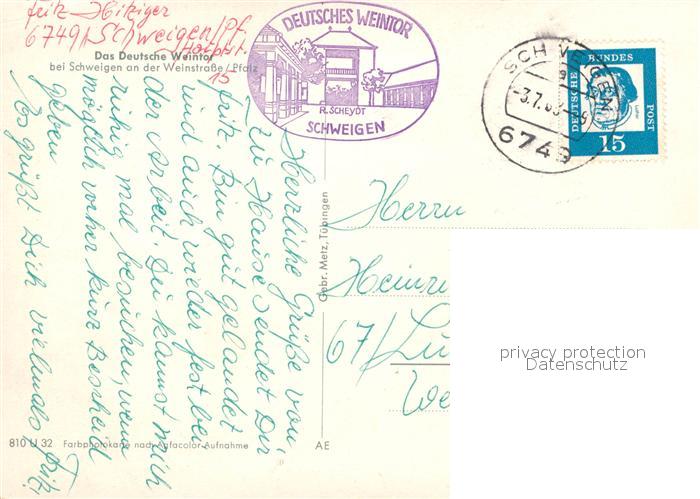 Fritz Hitziger
6749 Schweigen/Pf.
Hauptstr.
15
Das Deutsche Weintor
bei Schweigen an der Weinstraße/Pfalz
DEUTSCHES WEINTOR
R. SCHEYDT
SCHWEIGEN
SCHWEIGEN
-3.7.63
6749
DEUTSCHE BUNDESPOST
Luther
15
Herzliche Grüße von
zu Hause sendet Dir
Fritz. Bin gut gelandet
und auch wieder fest bei
der Arbeit. Du kannst mich
ruhig mal besuchen, wenn
möglich vorher kurz Bescheid
geben
Es grüßt Dich vielmals Fritz
Gebr. Metz, Tübingen
Herrn
Heinr
67/Lu
We
privacy protection
Datenschutz
810 U 32 Farbphotokarte nach Agfacolor-Aufnahme AE